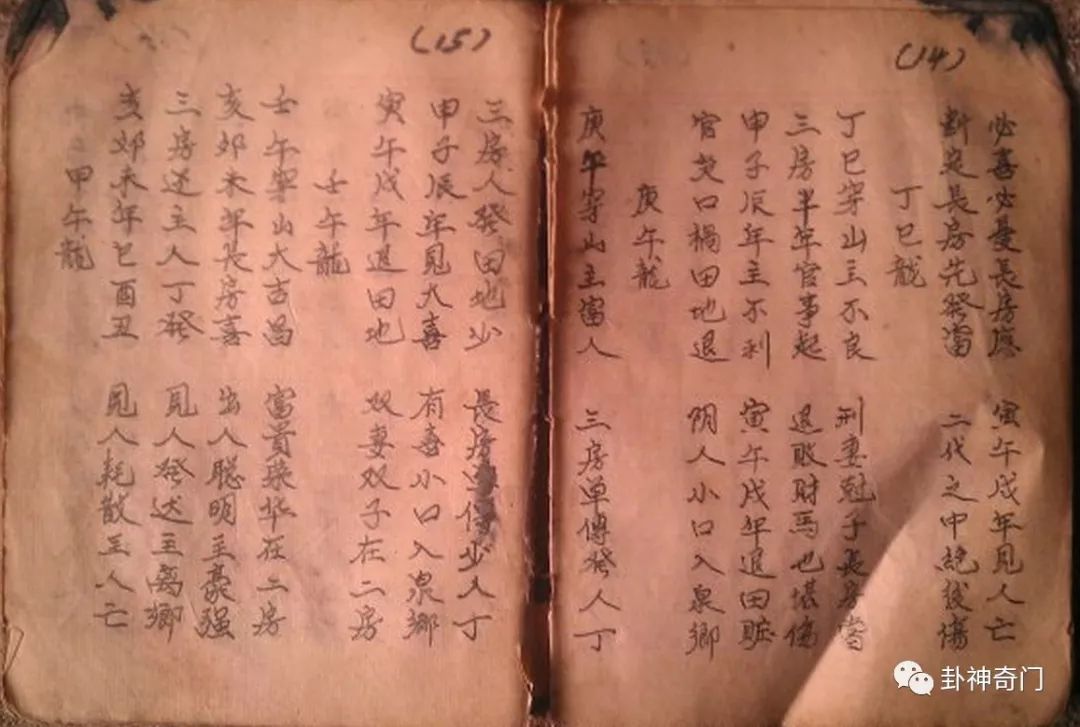 (14)
必喜必憂長房應 寅午戌年見人亡
断定長房先發富 二代之中絶後傷
丁巳龍
丁巳穿山主不良 刑妻尅子長房當
三房半年官事起 退敗財馬也堪傷
申子辰年主不利 寅午戌年退田賍
官災口禍田地退 阴人小口入泉鄉
庚午龍
庚午穿山主富人 三房单傳發人丁
(15)
三房人發田地少 長房单傳少人丁
甲子辰年見大喜 有喜小口入泉鄉
寅午戌年退田地 双妻双子在二房
壬午龍
壬午穿山大吉昌 富貴榮华在二房
亥卯未年長房喜 出人聰明主豪强
三房还主人丁發 見人發达主离鄉
亥卯未年巳酉丑 見人耗散主人亡
甲午龍
卦神奇门